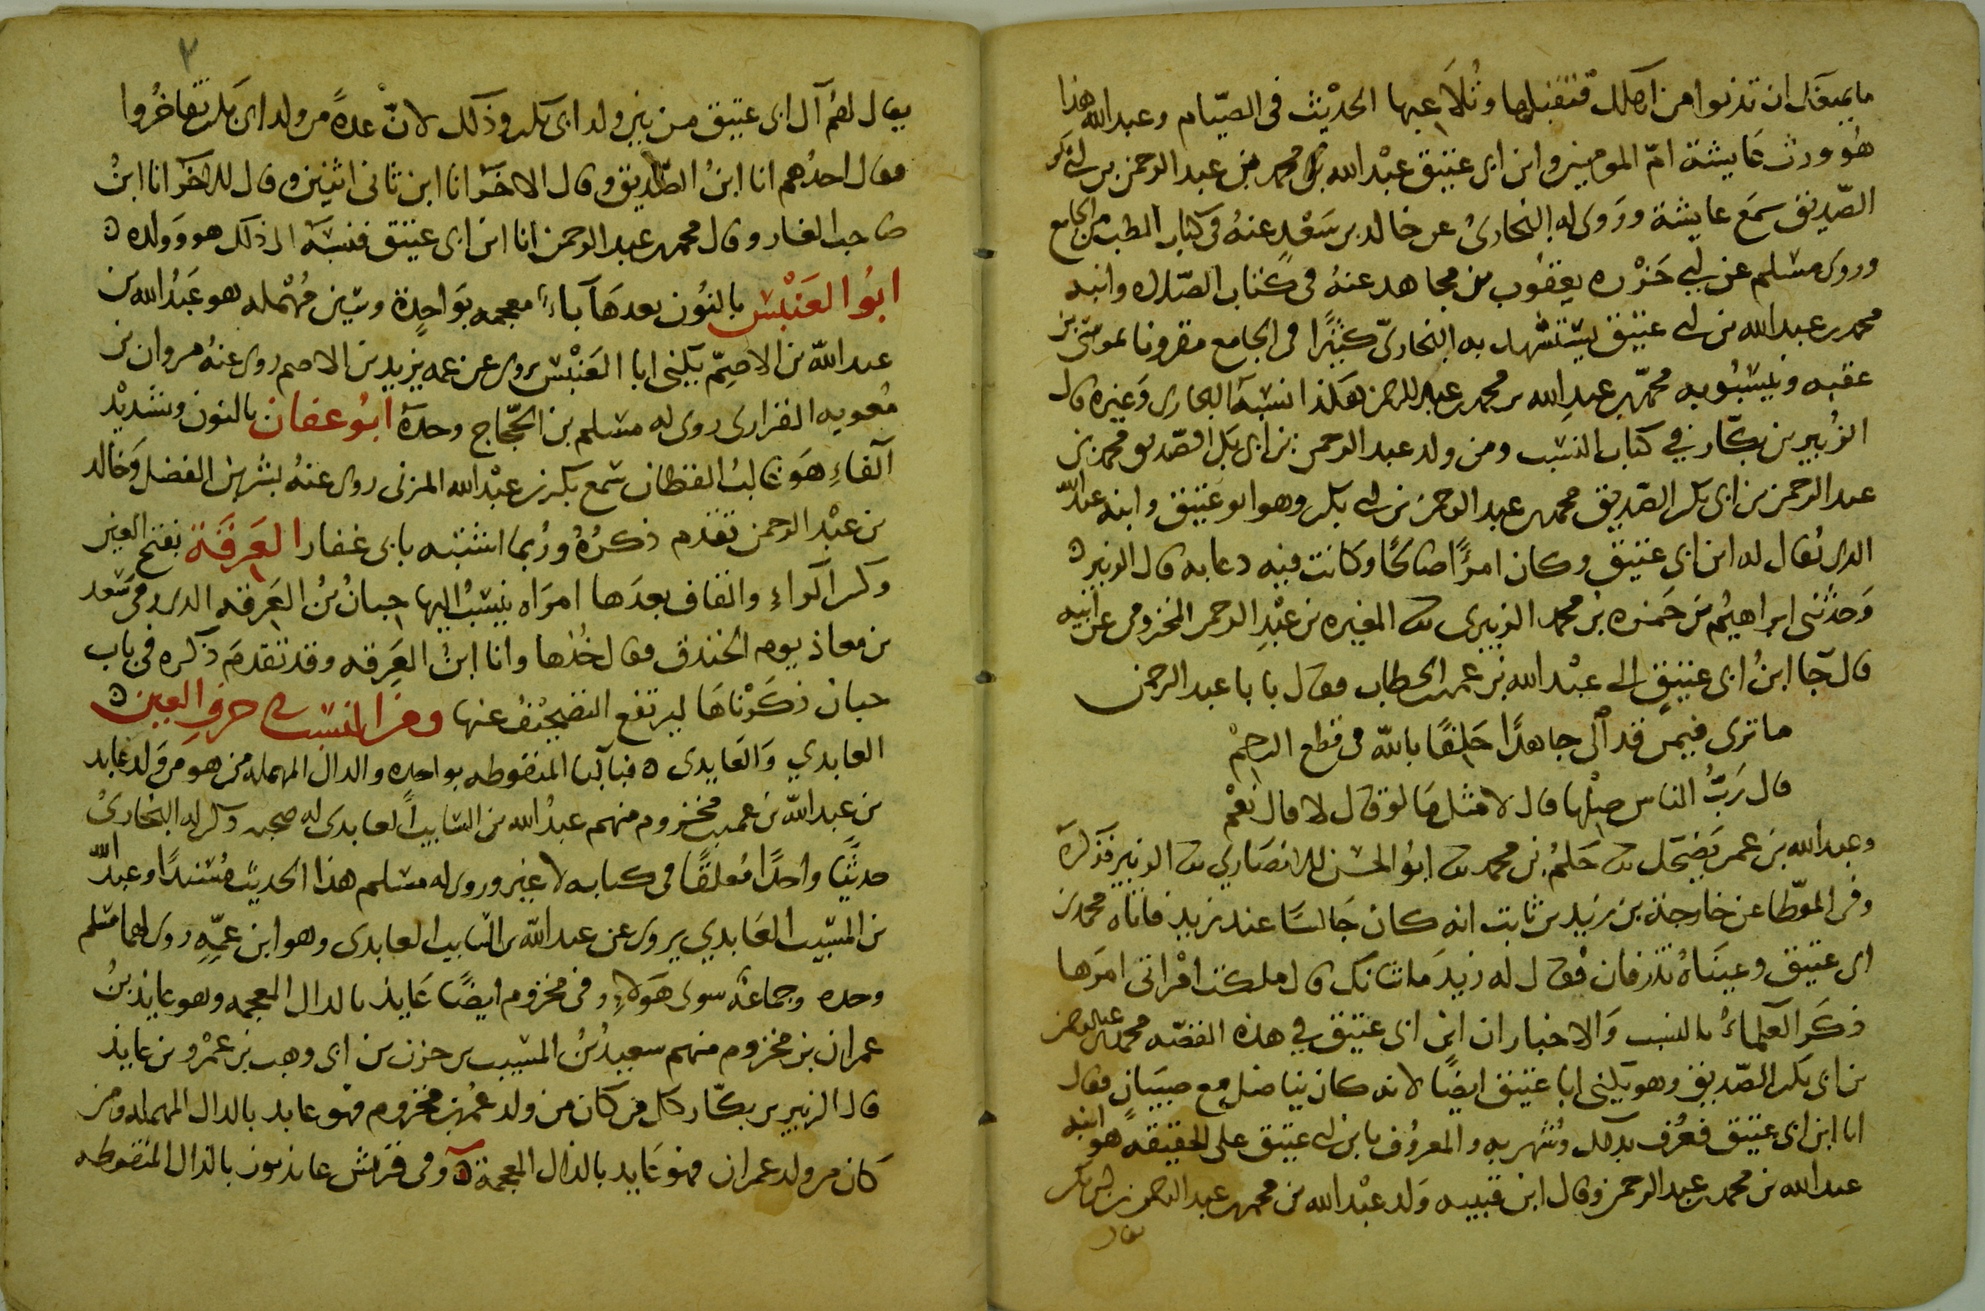 ما يمنعك ان تدنوا من اهلك فتقبلها وتُلَاعبها الحديث فى الصّيام وعبد الله هذا
هُو ورث عايشة امّ المومنين وابن ابى عتيق عبْد الله بن محمد بن عبد الرحمن بن ابى بكر
الصّديق سمَع عايشة ورَوى له البخارىُ عن خالد بن سَعْدٍ عنهُ فى كتاب الطب من الجامع
وروى مسلم عن ابى حَزْره يعقوب بن مجاهد عنهُ فى كتاب الصّلاه وابنه
محمد بن عبد الله بن ابى عتيق يستشهد به البخارىّ كثيرًا فى الجامع مقرونا بموسى بن
عقبه وينسبُونه محمّد بن عبدِ الله بن محمد بن عبد الرحمن هكذا نسبَهُ البخارى وَغيره قال
الزُبير بن بكّار فى كتاب النسب ومن ولد عبد الرحمن بن ابى بكر الصّديق محمد بن
عبد الرحمن بن ابى بكر الصّديق محمد بن عبد الرحمن بن ابى بكر وهو ابو عتيق وابنه عبد الله
الذى يُقال له ابن ابى عتيق وكان امرًا صَالحًا وكانت فيه دعابه قال الزبير ه
وَحدّثنى ابراهيمُ بن حَمزه بن محمد الزبيرى المغيره بن عبْدِ الرحمن المخزومى عن ابيه
قال جَا ابنُ ابى عتيقٍ الى عبْد الله بن عمر بن الخطاب فقال يا با عبد الرحمن
ما ترى فيمن قد آلى جاهدًا حَلِفًا بالله فى قطع الرحِمْ
قال رَبُّ الناس صِلْها قال لا مثل مَا لو قال لا قال نعَمْ
وعبد الله بن عمر يَضحَك حَكمُ بن محمد ابوُ الحسن الانصَارى الزبير فذكرهَ
وفى الموّطا عن خارجة بن زيد بن ثابت انه كان جَالسًا عند زيد فاتاه محمد بن
ابى عتيق وعينَاهُ تذرفان فقال له زيد مَا شانك قال ملكت امْرَاتى امرَها
ذكَر العُلماءُ بالنسب وَالاخبار ان ابن ابى عتيق فى هذه القصّه محمد بن عبد الرحمن
بن ابى بكر الصّديق وهو يكنى ابا عتيق ايضًا لانه كان يناضل مع صبيَانٍ فقال
انا ابن ابى عتيق فعُرف بذلك وشُهر به والمعروُف بابن ابى عتيق على الحقيقه هو ابنه
عبد الله بن محمد بن عبد الرحمن وقال ابن قتيبه وَلد عبْد الله بن محمد بن عبد الرحمن بن ابى بكر
يقال
يقال لهُم آل ابى عتيق من بين ولد ابى بكر وذلك لانّ عدهً من ولد ابى بكر تفاخرُوا
فقال احدُهم انا ابنُ الصّديق وقال الاخر انا ابن ثانى اثنين وقال الاخَر انا ابنُ
صَاحب الغار وقال محمد بن عبد الرحمن انا ابن ابى عتيق فنسبَهُ الى ذلك هو وَولده ه
ابوُ العَنْبس بالنوُن بعدهَا باءٌ معجمه بوَاحِدة وسِين مُهْمله هو عَبْدُ الله بن
عبد الله بن الاصمّ يكنى ابا العَنْبس يروى عن عمه يزيد بن الاصم روى عنهُ مروان بن
مُعويه الفزارى روى له مسلم بن الحجّاج وحدَهُ ابُو عفان بالنون وتشديْد
الفاءِ هَو غالبُ القطان سمع بكر بن عبْد الله المزنى روى عنهُ بشر بن المفضل وَخالد
بن عبْد الرحمن تقدم ذكرُهُ ورُبما اشتبه بابى غفار العَرِقَة بفتح العين
وكسر الراءِ والقاف بعدَها امرَاه ينسَبُ اليها حِبانُ بْنُ العَرِقه الذى رمى سَعد
بن معاذ يوم الخندق فقال خُذها وانا ابنُ العَرِقه وقد تقدمَ ذكره فى باب
حبان ذكرْناهَا ليرتفع التضجيْفُ عنها ومن النسب فى حرف العين ه
العابدي وَالعَايدى ه فبالبَا المنقوطه بواحده والدال المهمله من هو من وَلد عَابد
بن عبد الله بن عمر بن مخزوم منهم عبدُ الله بن السَّايب العابدى له صحبه ذكر له البخارىُ
حديثًا واحدًا مُعلقًا فى كتابه لا غير وروى له مسلم هذا الحديث مُسْندًا وعبد الله
بن المسَيّب العَابدي يروى عن عبد الله بن السايب العابدى وهو ابن عمِّه روى لهما مسلم
وحده وجماعَة سوى هَولاءِ وفى مخزوم ايضًا عَايذ بالذال المعجمه وهو عايذ بنُ
عمران بن مخزوم منهم سعيدُ بْنُ المسَيب بن حزن بن ابى وهب بن عمْرو بن عايذ
قال الزبير بن بكّار كل من كان من ولد عُمر بن مخزوم فهو عابد بالدال المهمله ومن
كان من ولد عمران فهو عَايد بالذال المعجمة ه وفى قريش عايذيون بالذال المنقوطه